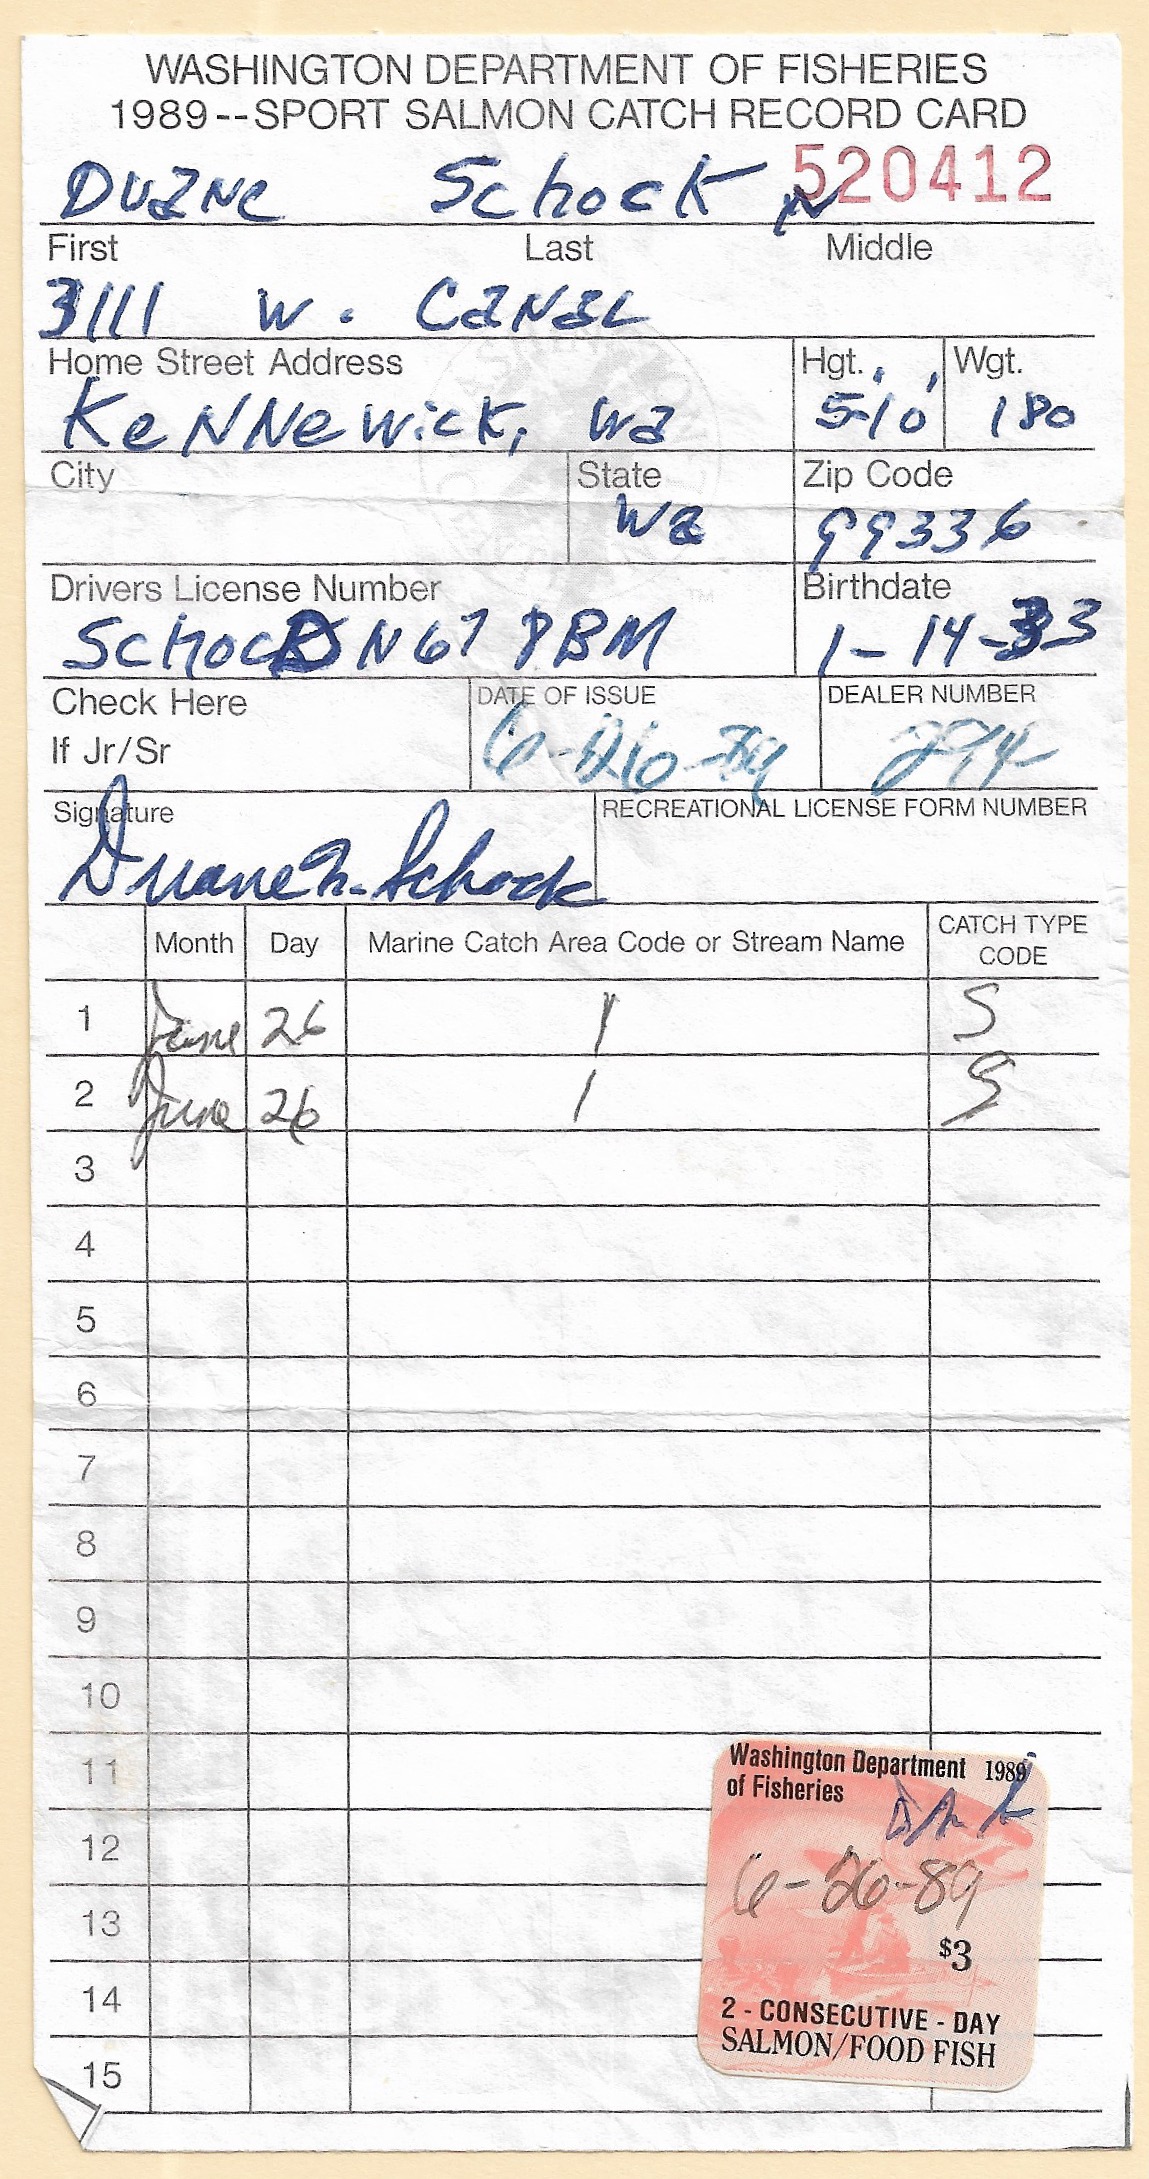 WASHINGTON DEPARTMENT OF FISHERIES
1989--SPORT SALMON CATCH RECORD CARD
520412
Duane Schock N
First Last Middle
3111 W. Canal
Home Street Address Hgt. Wgt.
Kennewick, Wa 5'10' 180
City State Zip Code
Wa 99336
Drivers License Number Birthdate
1-14-33
Check Here DATE OF ISSUE DEALER NUMBER
If Jr/Sr 6-26-89
Signature RECREATIONAL LICENSE FORM NUMBER
Duane N. Schock
Month Day Marine Catch Area Code or Stream Name CATCH TYPE CODE
1 June 26 1 S
2 June 26 1 S
3
4
5
6
7
8
9
10
11
12
13
14
15
Washington Department 1989
of Fisheries
6-26-89
$3
2 - CONSECUTIVE - DAY
SALMON/FOOD FISH